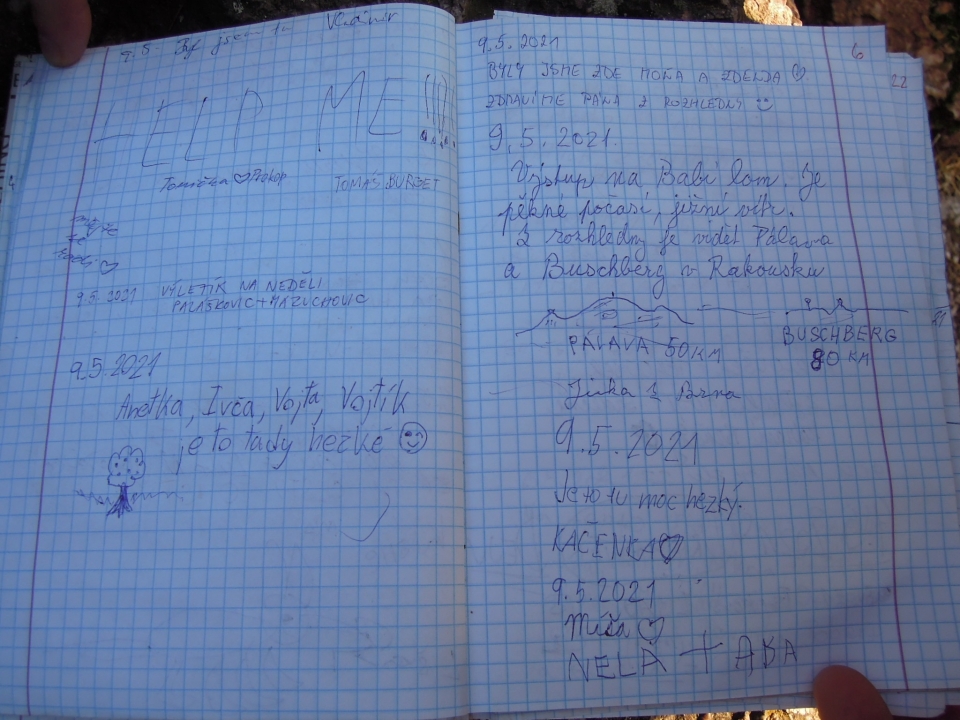 9.5. Byl jsem tu
HELP ME !!!
Tomička ♡ Prokop
TOMÁŠ BURGET
9.5.2021 VÝLETÍK NA NEDĚLI
9.5.2021
Anetka, Ivča, Vojta, Vojtík
je to tady hezké
9.5.2021
BYLY JSME ZDE MOŇA A ZDENDA ♡
ZDRAVÍME PÁNA Z ROZHLEDNY
9.5.2021.
Výstup na Babí lom. Je
pěkné počasí, jižní vítr.
Z rozhledny je vidět Pálava
a Buschberg v Rakousku
PÁLAVA 50KM
BUSCHBERG
80 KM
Jirka z Brna
9.5.2021
Je to tu moc hezký.
KAČENKA♡
9.5.2021
Míša ♡
NELA + ABA
6
22